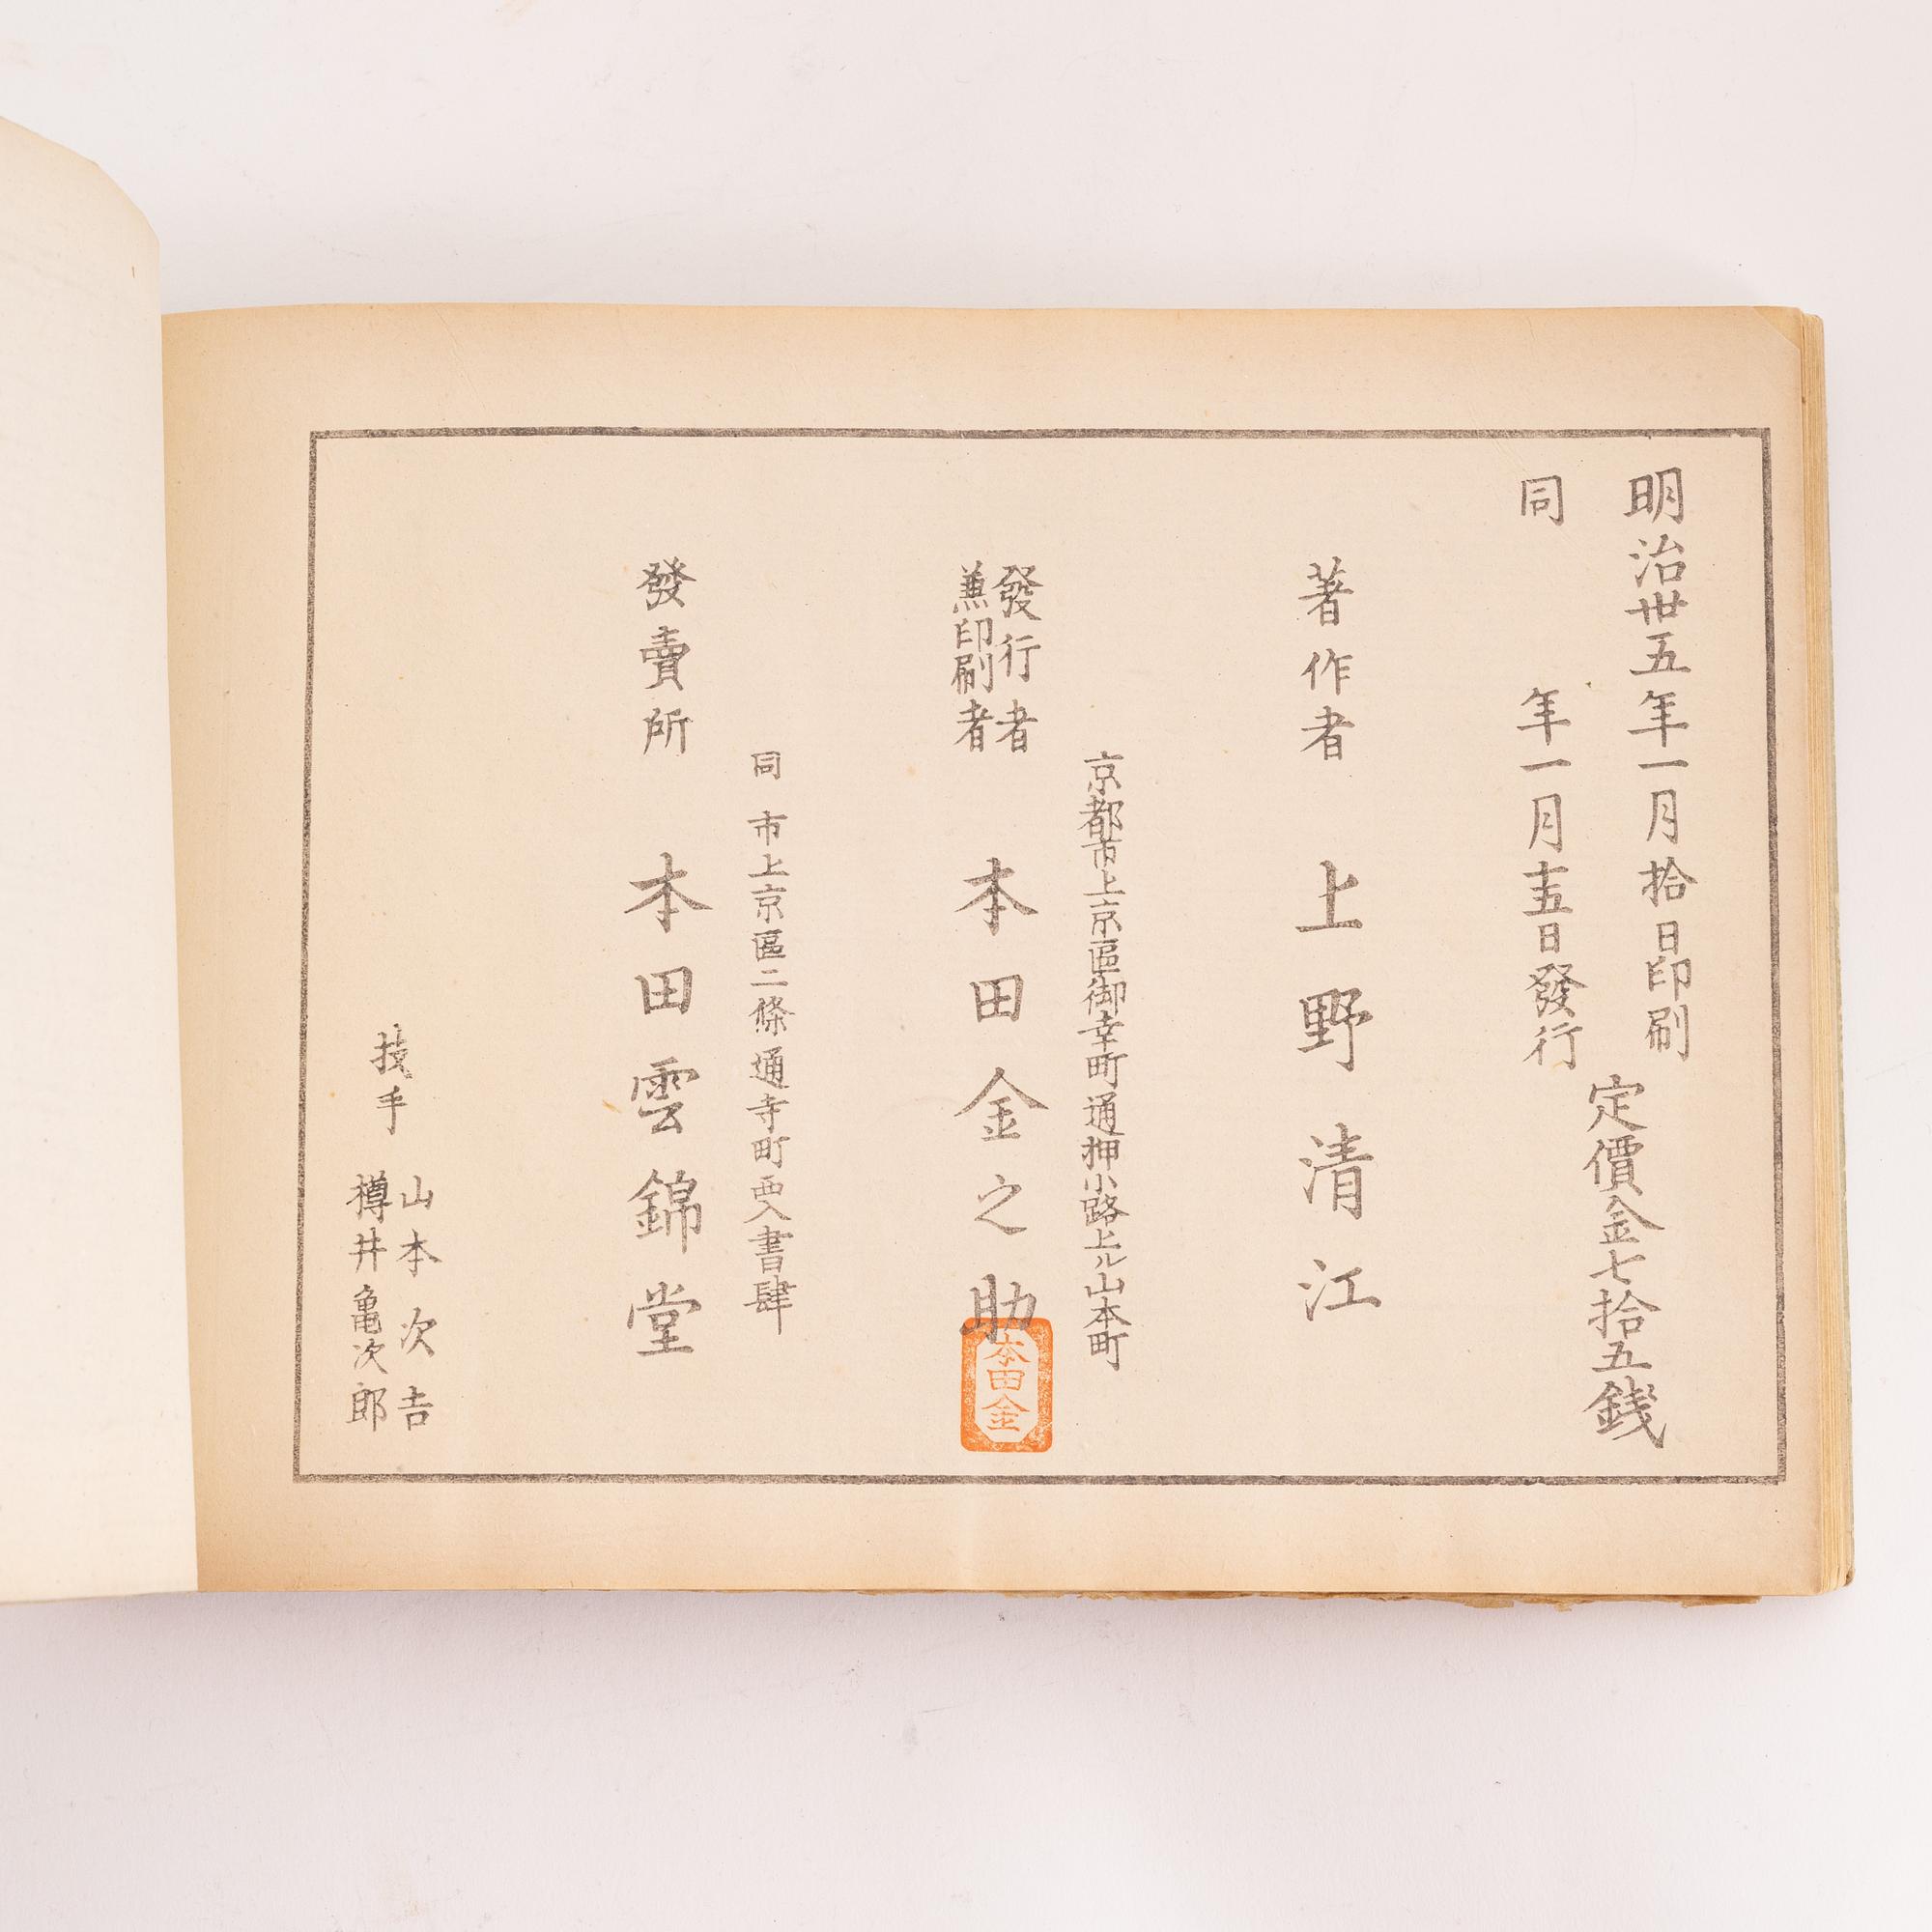 明治丗五年一月拾日印刷
同年一月十五日發行
定價金七拾五銭
著作者 上野清江
京都市上京區御幸町通押小路上ル山本町
發行者
兼印刷者
本田金之助
本田金
同市上京區二條通寺町西入書肆
發賣所 本田雲錦堂
技手
山本次吉
樽井亀次郎